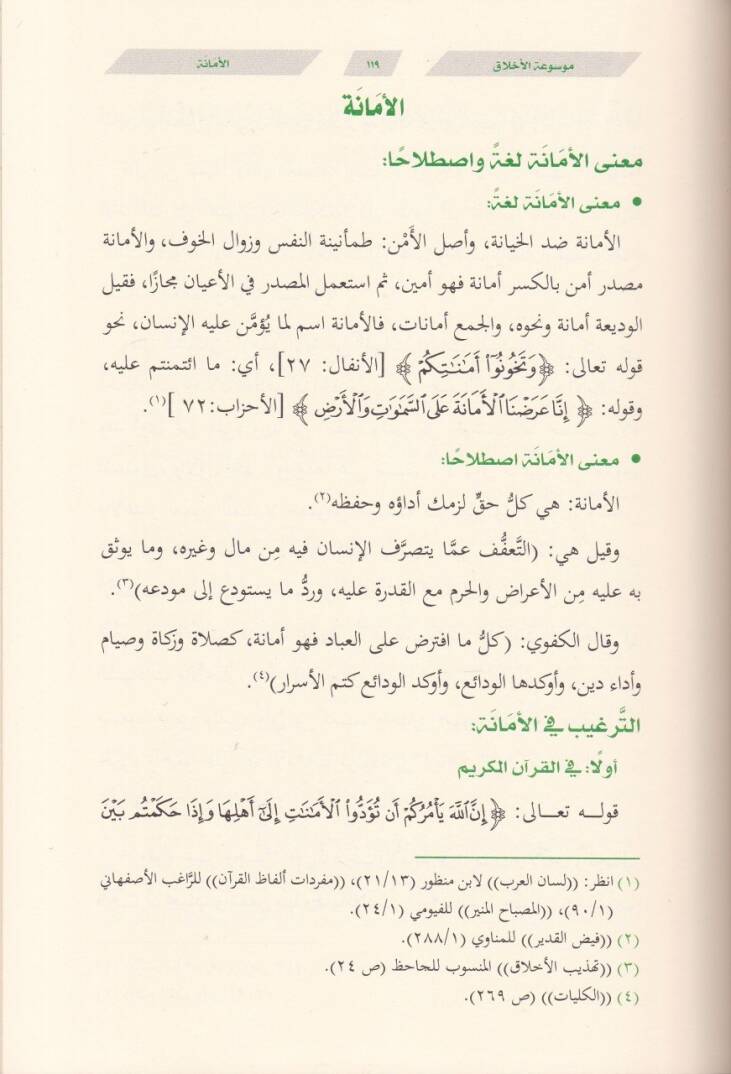 موسوعة الأخلاق
١١٩
الأمَانَة
الأمَانَة
معنى الأمَانَة لغةً واصطلاحًا:
• معنى الأمَانَة لغةً:
الأمانة ضد الخيانة، وأصل الأَمْن: طمأنينة النفس وزوال الخوف، والأمانة
مصدر أمن بالكسر أمانة فهو أمين، ثم استعمل المصدر في الأعيان مجازًا، فقيل
الوديعة أمانة ونحوه، والجمع أمانات، فالأمانة اسم لما يُؤمَّن عليه الإنسان، نحو
قوله تعالى: ﴿وَتَخُونُوٓا۟ أَمَـٰنَـٰتِكُمْ﴾ [الأنفال: ٢٧]، أي: ما ائتمنتم عليه،
وقوله: ﴿إِنَّا عَرَضْنَا ٱلْأَمَانَةَ عَلَى ٱلسَّمَـٰوَٰتِ وَٱلْأَرْضِ﴾ [الأحزاب: ٧٢](١).
• معنى الأمَانَة اصطلاحًا:
الأمانة: هي كلُّ حقٍّ لزمك أداؤه وحفظه(٢).
وقيل هي: (التَّعفُّف عمَّا يتصرَّف الإنسان فيه مِن مال وغيره، وما يوثق
به عليه مِن الأعراض والحرم مع القدرة عليه، وردُّ ما يستودع إلى مودعه)(٣).
وقال الكفوي: (كلُّ ما افترض على العباد فهو أمانة، كصلاة وزكاة وصيام
وأداء دين، وأوكدها الودائع، وأوكد الودائع كتم الأسرار)(٤).
التَّرغيب في الأمَانَة:
أولًا: في القرآن الكريم
قولـه تعـالى: ﴿إِنَّ ٱللَّهَ يَأْمُرُكُمْ أَن تُؤَدُّوا۟ ٱلْأَمَـٰنَـٰتِ إِلَىٰٓ أَهْلِهَا وَإِذَا حَكَمْتُم بَيْنَ
(١) انظر: ((لسان العرب)) لابن منظور (٢١/١٣)، ((مفردات ألفاظ القرآن)) للرَّاغب الأصفهاني
(٩٠/١)، ((المصباح المنير)) للفيومي (٢٤/١).
(٢) ((فيض القدير)) للمناوي (٢٨٨/١).
(٣) ((تهذيب الأخلاق)) المنسوب للجاحظ (ص ٢٤).
(٤) ((الكليات)) (ص ٢٦٩).